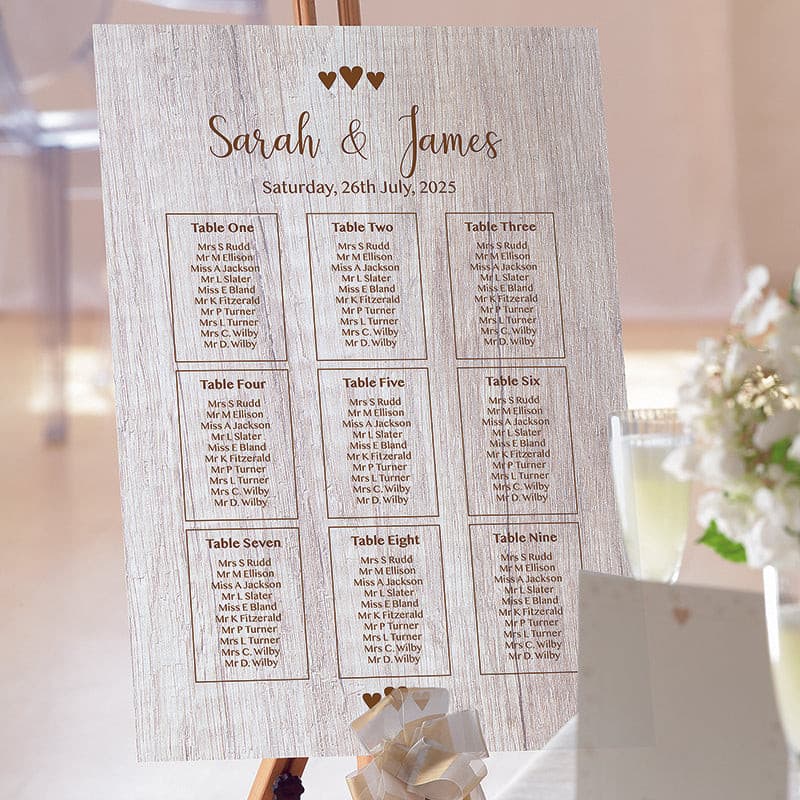 Sarah & James
Saturday, 26th July, 2025
Table One
Mrs S Rudd
Mr M Ellison
Miss A Jackson
Mr L Slater
Miss E Bland
Mr K Fitzerald
Mr P Turner
Mrs L Turner
Mrs C. Wilby
Mr D. Wilby
Table Two
Mrs S Rudd
Mr M Ellison
Miss A Jackson
Mr L Slater
Miss E Bland
Mr K Fitzerald
Mr P Turner
Mrs L Turner
Mrs C. Wilby
Mr D. Wilby
Table Three
Mrs S Rudd
Mr M Ellison
Miss A Jackson
Mr L Slater
Miss E Bland
Mr K Fitzerald
Mr P Turner
Mrs L Turner
Mrs C. Wilby
Mr D. Wilby
Table Four
Mrs S Rudd
Mr M Ellison
Miss A Jackson
Mr L Slater
Miss E Bland
Mr K Fitzerald
Mr P Turner
Mrs L Turner
Mrs C. Wilby
Mr D. Wilby
Table Five
Mrs S Rudd
Mr M Ellison
Miss A Jackson
Mr L Slater
Miss E Bland
Mr K Fitzerald
Mr P Turner
Mrs L Turner
Mrs C. Wilby
Mr D. Wilby
Table Six
Mrs S Rudd
Mr M Ellison
Miss A Jackson
Mr L Slater
Miss E Bland
Mr K Fitzerald
Mr P Turner
Mrs L Turner
Mrs C. Wilby
Mr D. Wilby
Table Seven
Mrs S Rudd
Mr M Ellison
Miss A Jackson
Mr L Slater
Miss E Bland
Mr K Fitzerald
Mr P Turner
Mrs L Turner
Mrs C. Wilby
Mr D. Wilby
Table Eight
Mrs S Rudd
Mr M Ellison
Miss A Jackson
Mr L Slater
Miss E Bland
Mr K Fitzerald
Mr P Turner
Mrs L Turner
Mrs C. Wilby
Mr D. Wilby
Table Nine
Mrs S Rudd
Mr M Ellison
Miss A Jackson
Mr L Slater
Miss E Bland
Mr K Fitzerald
Mr P Turner
Mrs L Turner
Mrs C. Wilby
Mr D. Wilby